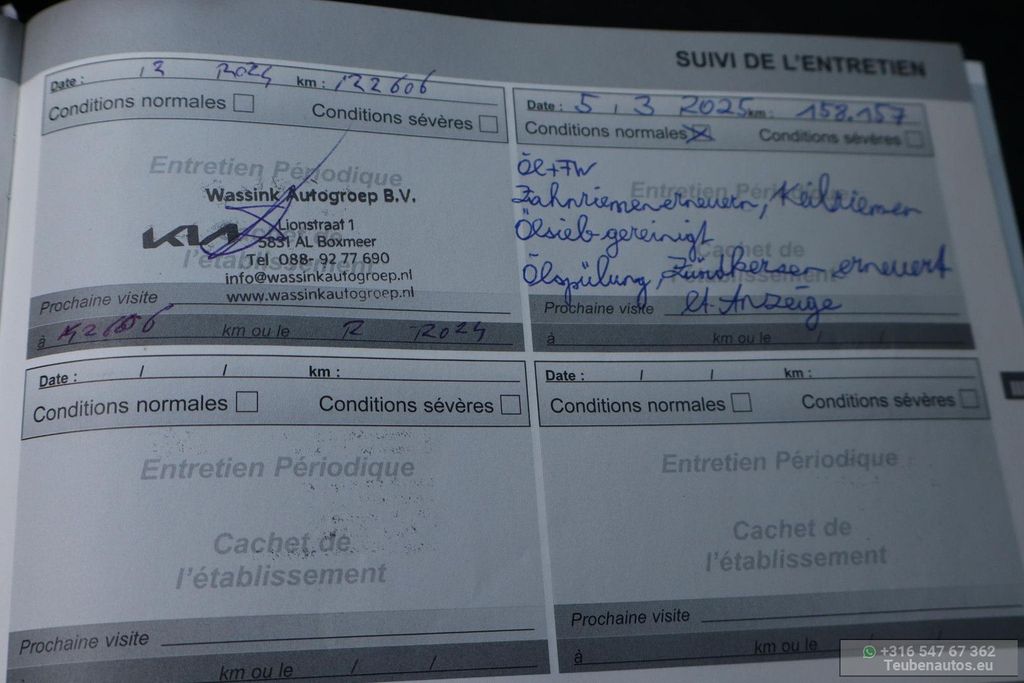 SUIVI DE L'ENTRETIEN
Date : 12 2024 km : 122606
Conditions normales
Conditions sévères
Entretien Périodique
Wassink Autogroep B.V.
KIA
Lionstraat 1
5831 AL Boxmeer
Tel 088- 92 77 690
info@wassinkautogroep.nl
www.wassinkautogroep.nl
Cachet de
l'établissement
Prochaine visite
à km ou le 2024
Date : 5 , 3 2025 km : 158.157
Conditions normales
Conditions sévères
Entretien Périodique
Öl+FW
Zahnriemen erneuern, Keilriemen
Ölsieb gereinigt
Cachet de
Ölspülung, Zündkerzen erneuert
lt. Anzeige
Prochaine visite
à km ou le / /
Date : / / km :
Conditions normales
Conditions sévères
Entretien Périodique
Cachet de
l'établissement
Prochaine visite
km ou le / /
Date : / / km :
Conditions normales
Conditions sévères
Entretien Périodique
Cachet de
l'établissement
Prochaine visite
à km ou le
+316 547 67 362
Teubenautos.eu